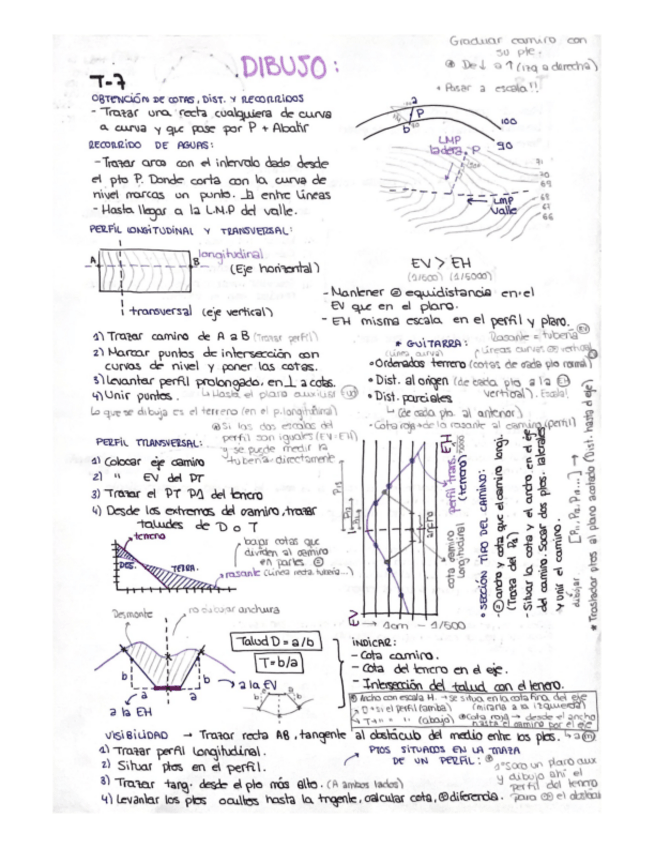 DIBUJO:
T-7
Graduar camino con
• Pasar a escala!!
OBTENCIÓN DE COTAS, DIST. Y RECORRIDOS
- Trazar una recta cualquiera de curva
a curva y que pase por P + Abatir
RECORRIDO DE AGUAS:
- Trazar arco con el intervalo dado desde
el pto P. Donde corta con la curva de
nivel marcas un punto. ⊥ entre líneas
- Hasta llegar a la L.M.P del valle.
a
P
b
100
90
LMP
ladera
P
71
70
69
68
67
66
LMP
Valle
PERFIL LONGITUDINAL Y TRANSVERSAL:
A
B
longitudinal
(Eje horizontal)
transversal (eje vertical)
EV > EH
(1/500) (1/5000)
- Mantener equidistancia en el
EV que en el plano.
- EH misma escala en el perfil y plano.
1) Trazar camino de A a B (Trazar perfil)
2) Marcar puntos de intersección con
curvas de nivel y poner las cotas.
3) Levantar perfil prolongado, en ⊥ a cotas.
4) Unir puntos.
Lo que se dibuja es el terreno (en el p. longitudinal)
* GUITARRA:
Rasante = tubería
• Ordenadas terreno (cotas de cada pto
• Dist. al origen (de cada pto a la
vertical). Escala!
• Dist. parciales
(de cada pto. al anterior)
- Cota roja = de la rasante al camino (perfil)
Si las dos escalas del
perfil son iguales (EV=EH)
y se puede medir la
tubería directamente
PERFIL TRANSVERSAL:
1) Colocar eje camino
2) " EV del PT
3) Trazar el PT del terreno
4) Desde los extremos del camino, trazar
taludes de D o T
terreno
DES.
TERRA.
bajar cotas que
dividen al camino
en partes
rasante (línea recta, tubería...)
EH
EV
perfil trans.
(terreno)
cota camino
longitudinal
ancho
1cm - 1/500
• SECCIÓN TIPO DEL CAMINO:
ancho y cota que el camino longi.
- Situar la cota y el ancho en el eje
del camino. Sacar dos ptos. laterales
y unir el camino.
dibujar
* Trasladar ptos al plano acotado (Dist. hasta el eje)
Desmonte
no dibujar anchura
b
a
a
b
a la EH
a la EV
Talud D = a/b
T = b/a
INDICAR:
- Cota camino.
- Cota del terreno en el eje.
- Intersección del talud con el terreno.
Ancho con escala H. → se situa en la cota final del eje
D → si el perfil (arriba) (mirarla a la izquierda)
T → " " (abajo)
Cota roja → desde el ancho
hasta el camino por el eje
VISIBILIDAD → Trazar recta AB, tangente al obstáculo del medio entre los ptos.
1) Trazar perfil longitudinal.
2) Situar ptos en el perfil.
3) Trazar tang. desde el pto más alto. (A ambos lados)
4) Levantar los ptos ocultos hasta la tngente, calcular cota, diferencia.
PTOS SITUADOS EN LA TRAZA
DE UN PERFIL:
Saco un plano aux
y dibujo ahí el
perfil del terreno